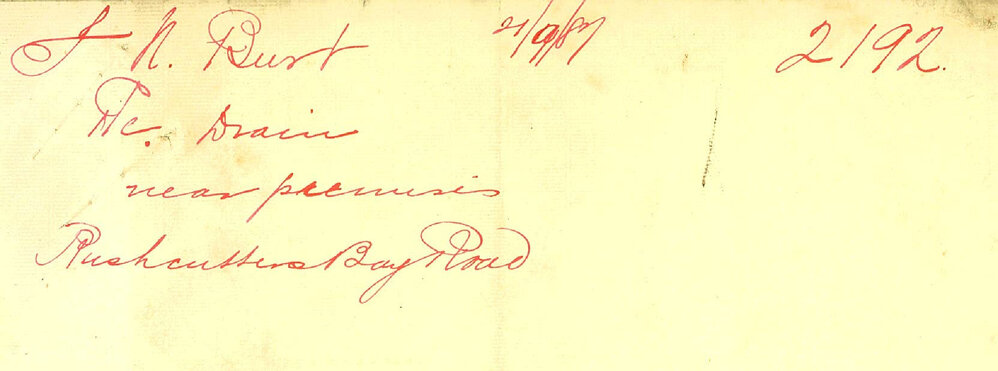 J N. Burt 21/9/87 2192.
Re. Drain
near premises
Rushcutters Bay Road